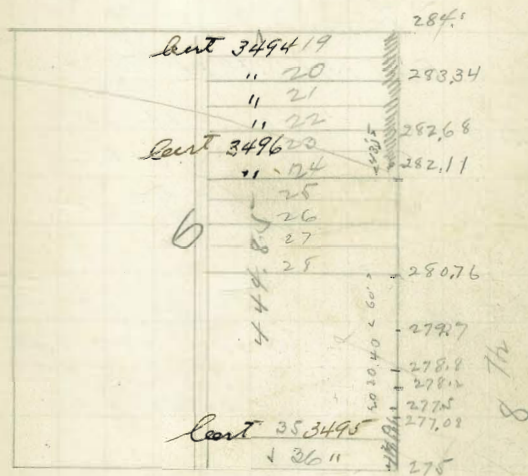 284.
cert 3494 19
" 20 283.34
" 21
" 22 282.68
cert 3496 23
" 24 282.11
25
26
6
27
28 280.76
449.85
20 20.40 < 60' >
279.7
278.8
278.2
277.5
277.08
cert 35 3495
36 " 275
8 Th